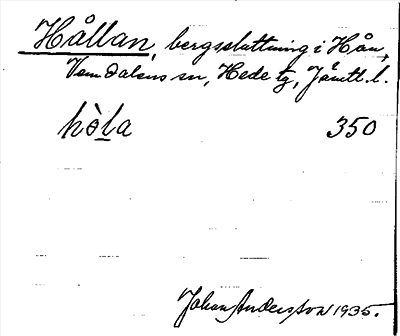 Hållan, bergssluttning i Hån,
Vemdalens sn, Hede tg, Jämtl. l.
hòla 350
Johan Andersson 1935.